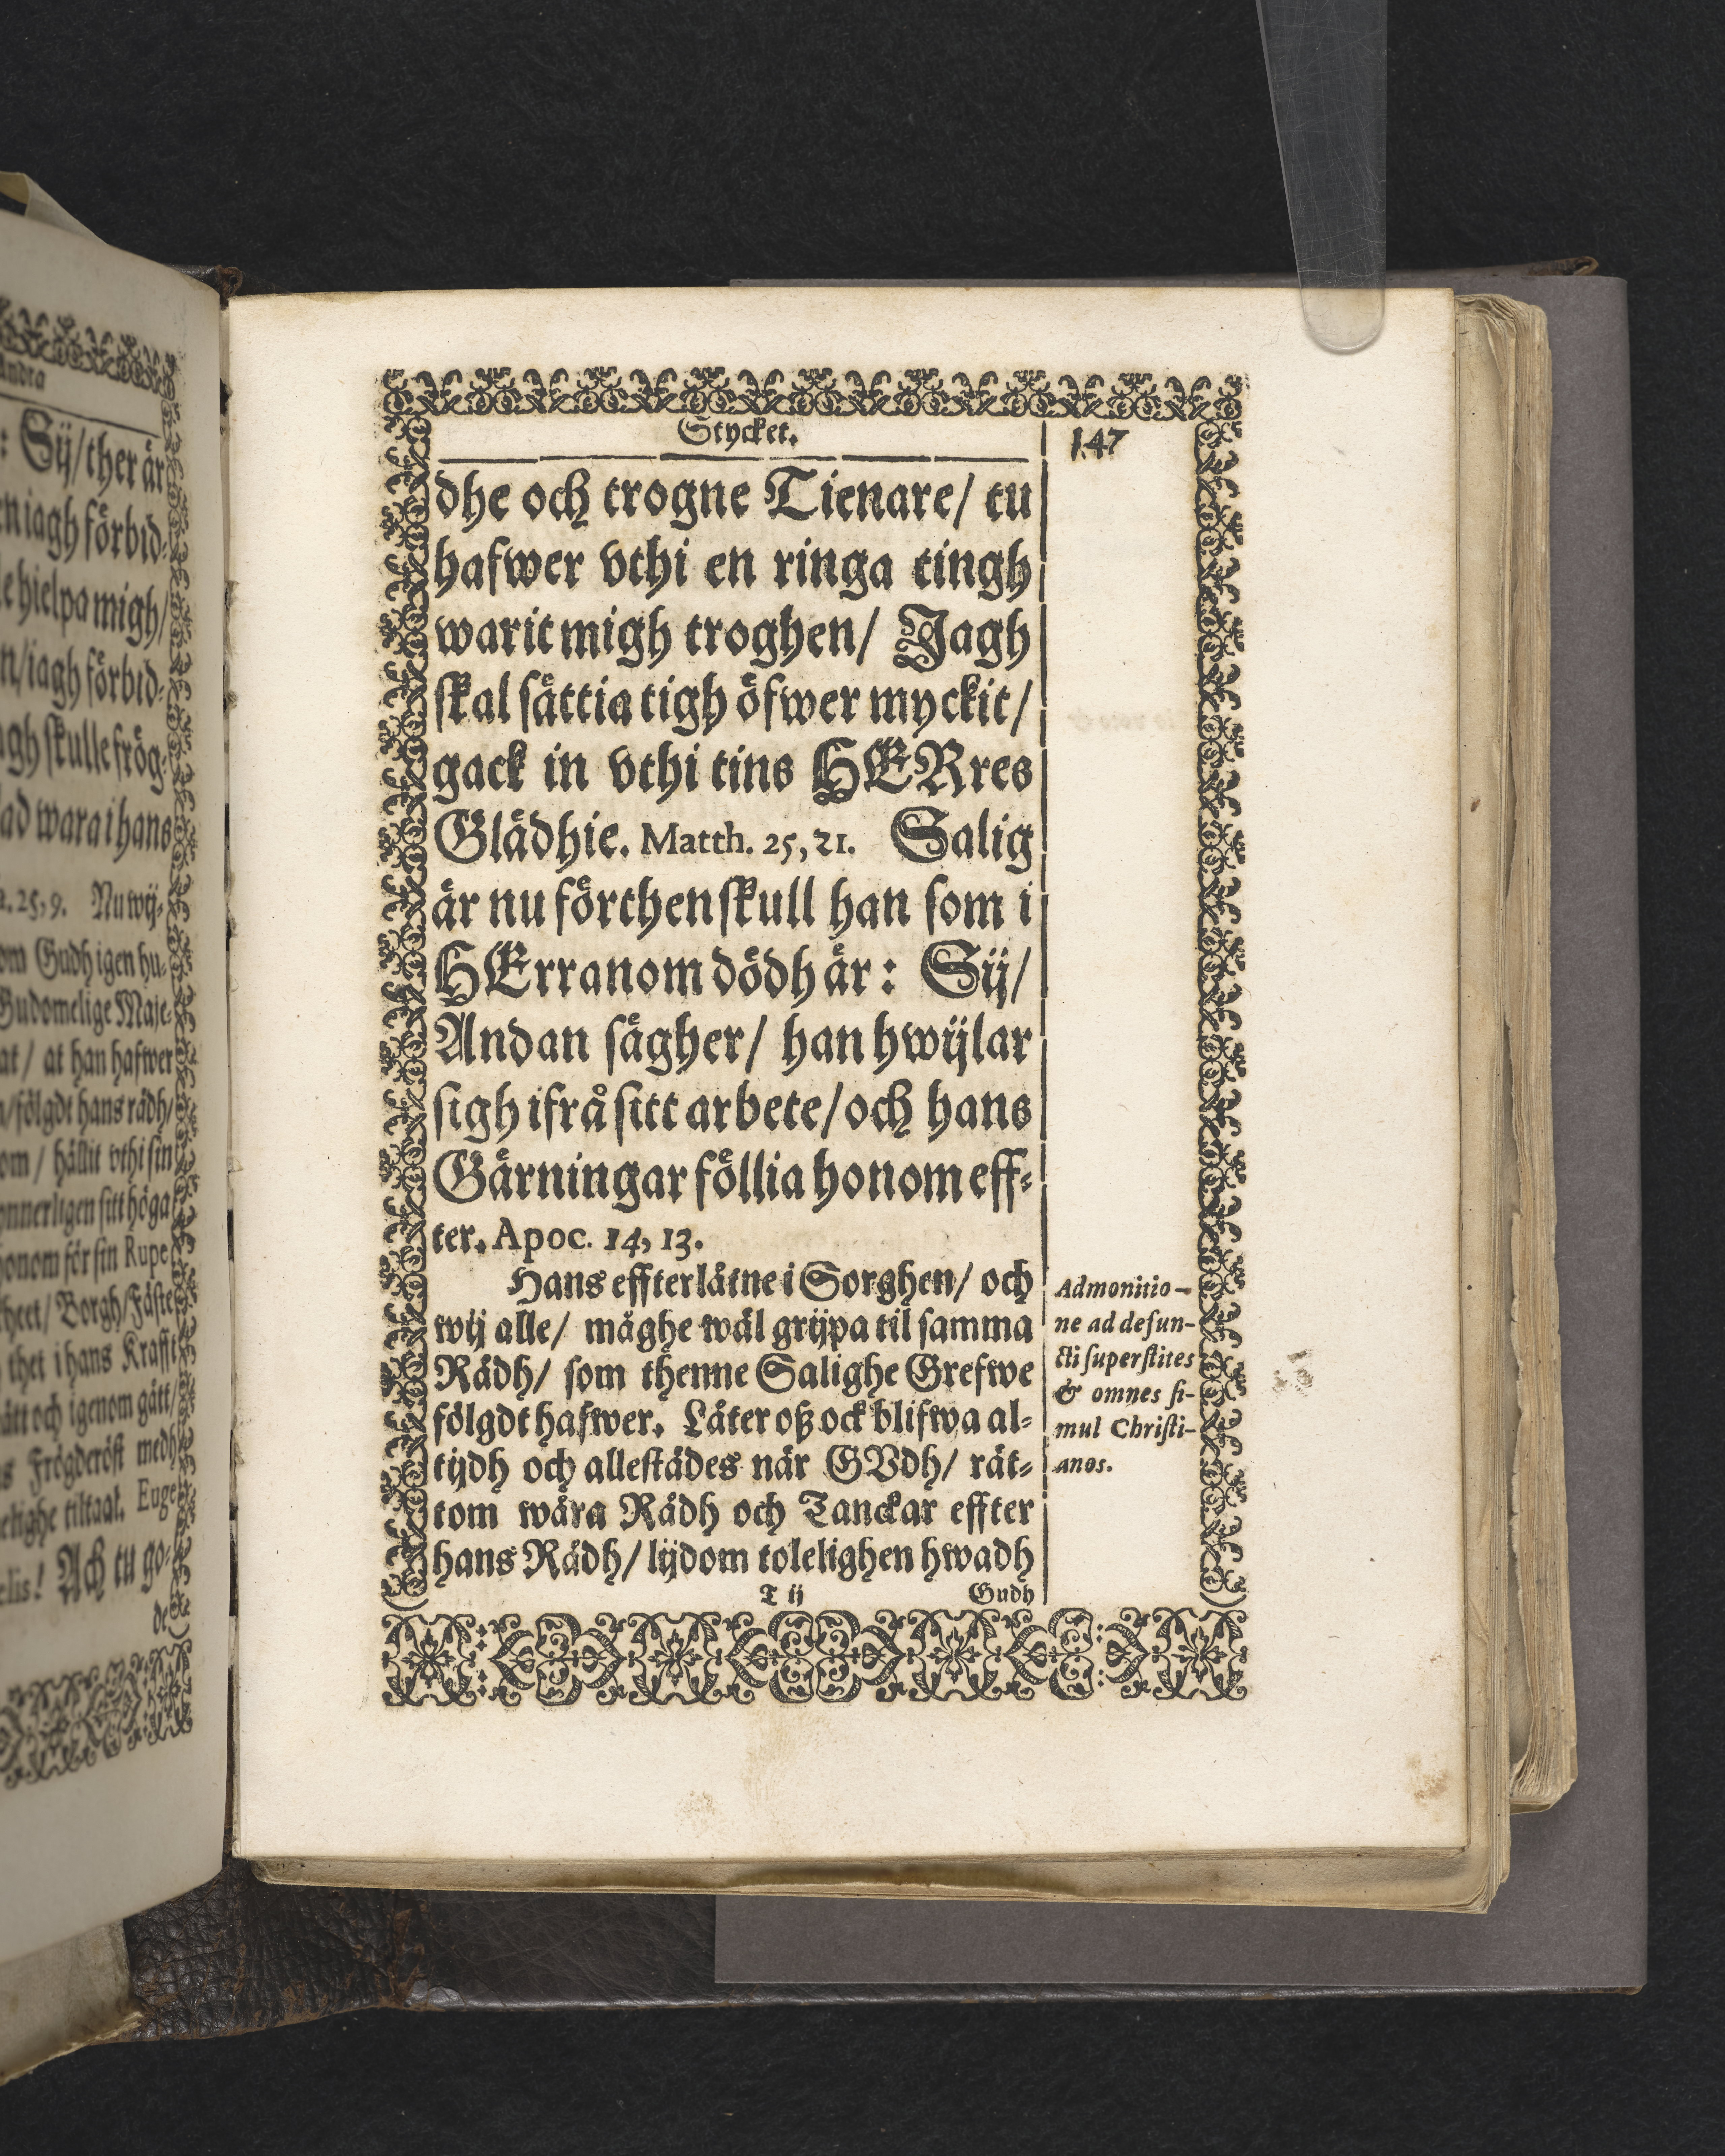 Andra
: Sij/ ther är
en iagh förbid-
le hielpa migh/
n/ iagh förbid-
agh skulle frög-
lad wara i hans
25, 9. Nu wij-
om Gudh igen hu-
Gudomelige Maje-
at / at han hafwer
/ fölgdt hans rådh/
om / hållit vthi sin
onnerligen sitt höga
honom för sin Rupe
heet/ Borgh/ Fäste
thet i hans Krafft
ått och igenom gått/
s Frögderöst medh
elighe tiltaal. Euge
elis! Ach tu go-
de
Stycket.
147
dhe och trogne Tienare/ tu
hafwer vthi en ringa tingh
warit migh troghen/ Jagh
skal sättia tigh öfwer myckit/
gack in vthi tins HERres
Glädhie. Matth. 25, 21. Salig
är nu förthenskull han som i
HErranom dödh är: Sij/
Andan sägher/ han hwijlar
sigh ifrå sitt arbete/ och hans
Gärningar föllia honom eff-
ter. Apoc. 14, 13.
Hans effterlåtne i Sorghen/ och
wij alle/ måghe wäl grijpa til samma
Rådh/ som thenne Salighe Grefwe
fölgdt hafwer. Låter oß ock blifwa al-
tijdh och allestädes när GVdh/ rät-
tom wåra Rådh och Tanckar effter
hans Rådh/ lijdom tolelighen hwadh
T ij
Gudh
Admonitio-
ne ad defun-
cti superstites
& omnes si-
mul Christi-
anos.